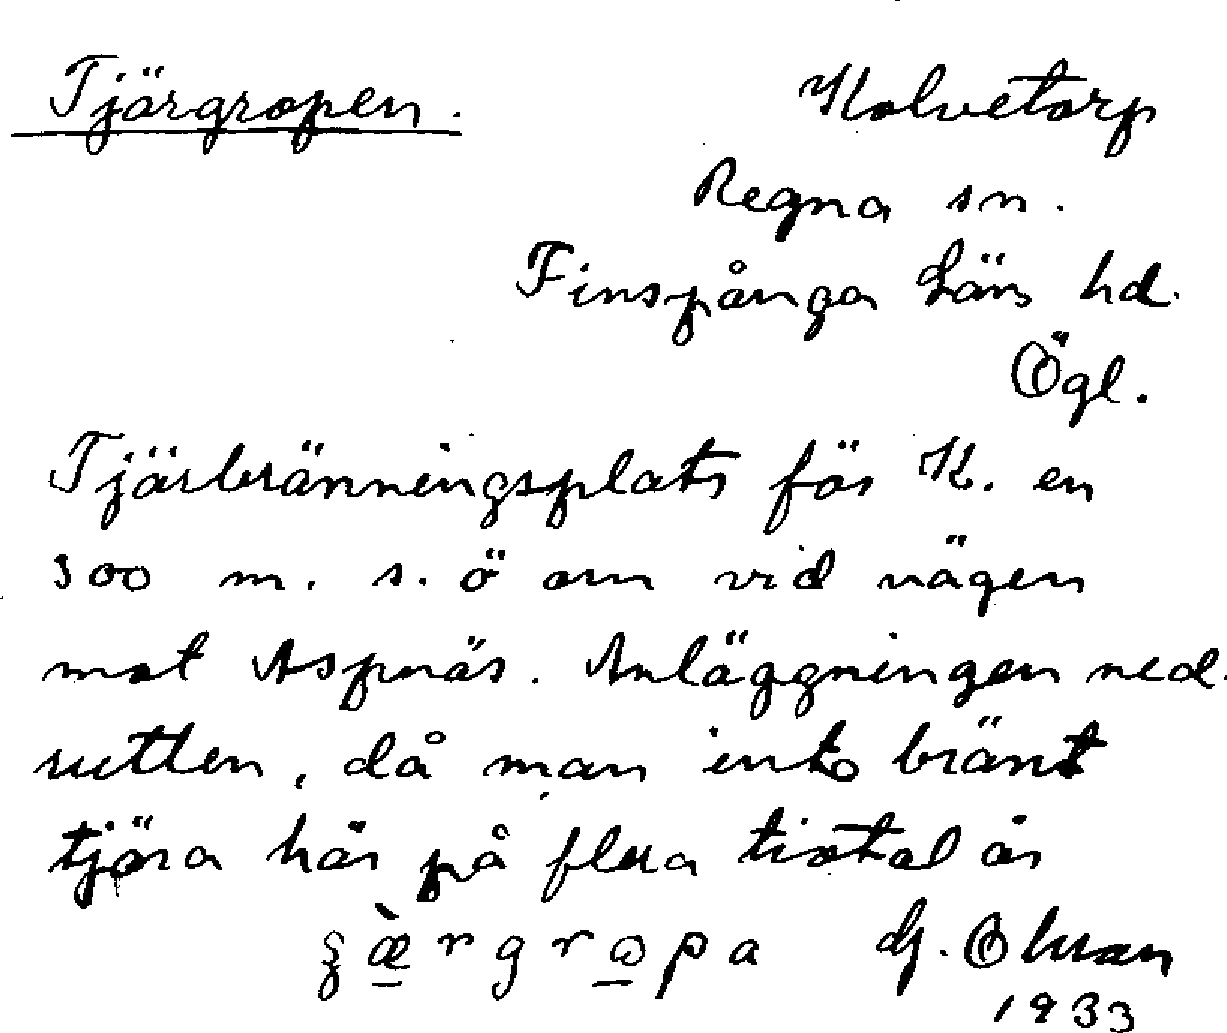 Tjärgropen.
Kolvetorp
Regna sn.
Finspånga Läns hd.
Ögl.
Tjärbränningsplats för K. en
300 m. s. ö om vid vägen
mot Aspnäs. Anläggningen ned-
rutten, då man inte bränt
tjära här på flera tiotal år
G. Ohman
1933